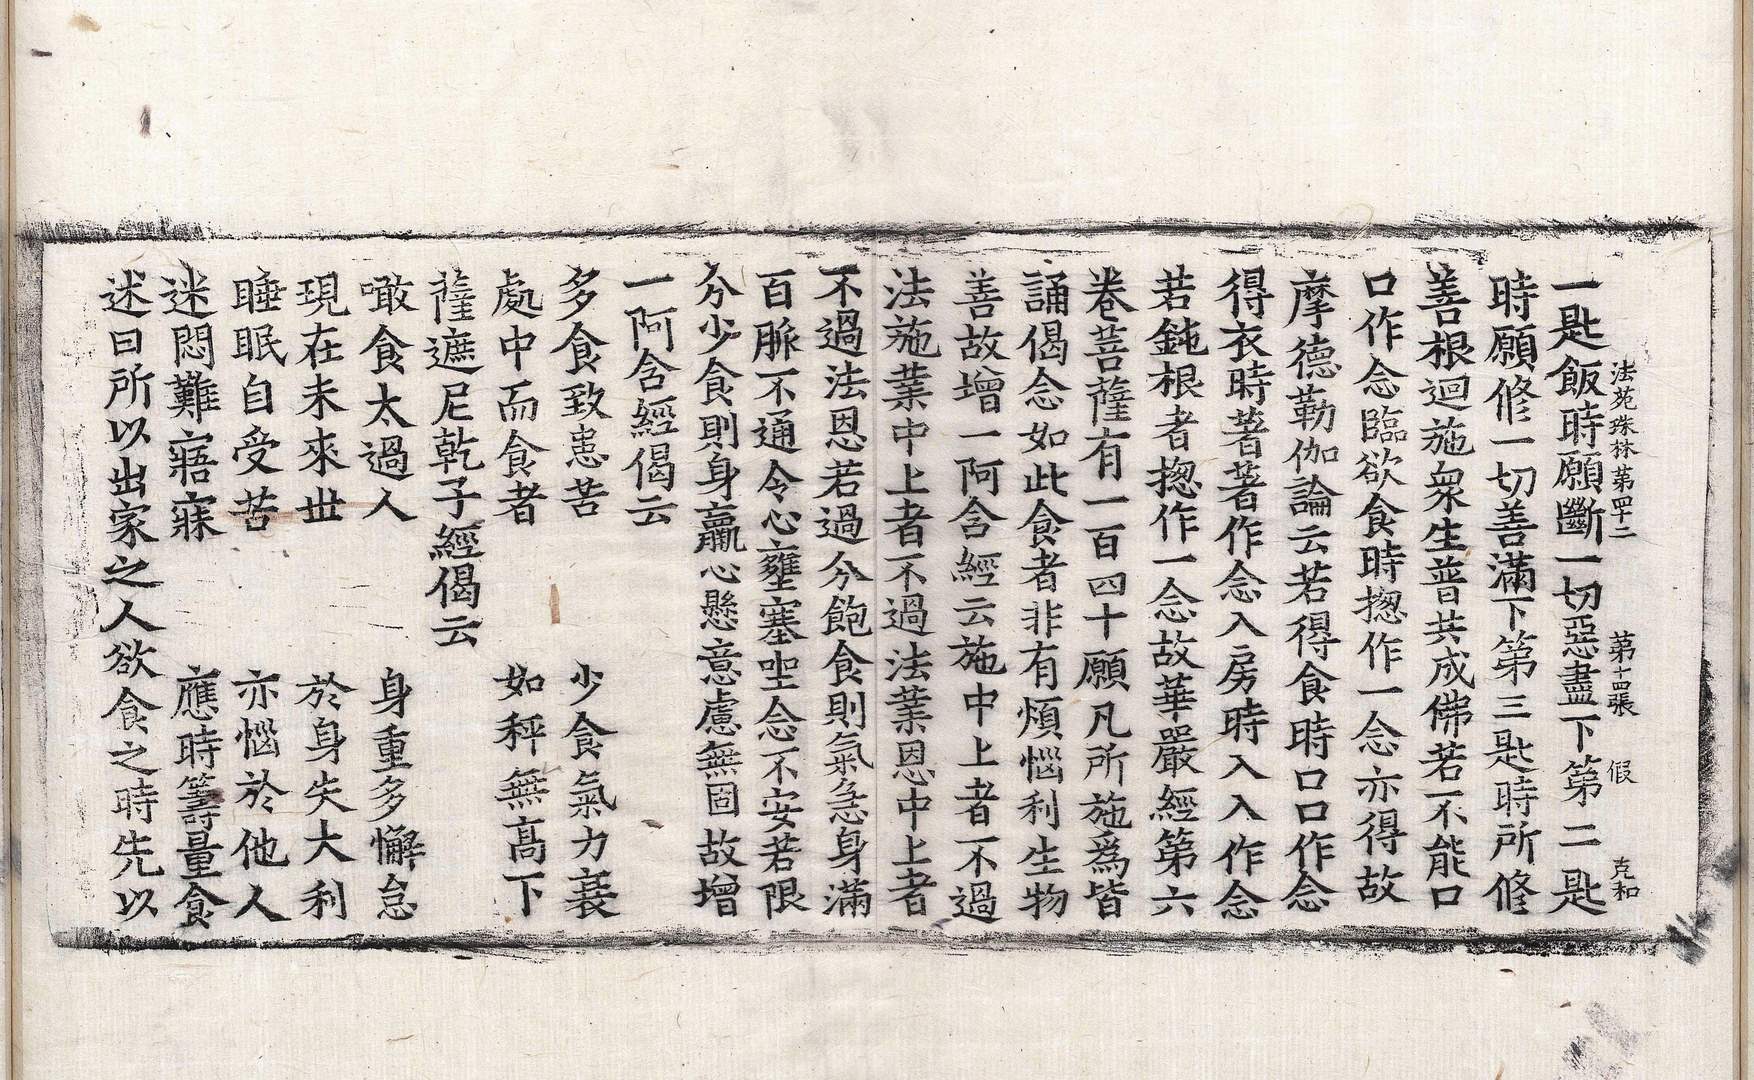 法苑珠林第四十二 第十四張 假 克和
一匙飯時願斷一切惡盡下第二匙
時願修一切善滿下第三匙時所修
善根迴施衆生普共成佛若不能口
口作念臨欲食時揔作一念亦得故
摩德勒伽論云若得食時口口作念
得衣時著著作念入房時入入作念
若鈍根者揔作一念故華嚴經第六
卷菩薩有一百四十願凡所施爲皆
誦偈念如此食者非有煩惱利生物
善故增一阿含經云施中上者不過
法施業中上者不過法業恩中上者
不過法恩若過分飽食則氣急身滿
百脈不通令心壅塞坐念不安若限
分少食則身羸心懸意慮無固故增
一阿含經偈云
多食致患苦 少食氣力衰
處中而食者 如秤無高下
薩遮尼乾子經偈云
噉食太過人 身重多懈怠
現在未來世 於身失大利
睡眠自受苦 亦惱於他人
迷悶難寤寐 應時籌量食
述曰所以出家之人欲食之時先以